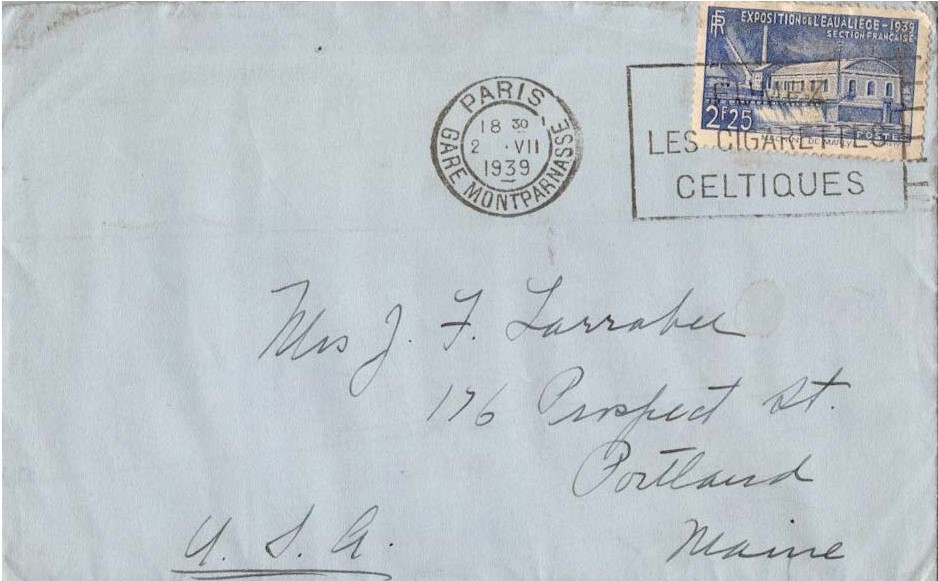 RF
EXPOSITION DE L'EAU LIEGE-1939
SECTION FRANÇAISE
2F25
POSTES
PARIS
18 30
2 · VII
1939
GARE MONTPARNASSE
FUMEZ
LES CIGARETTES
CELTIQUES
Mrs J. F. Larrabee
176 Prospect St.
Portland
Maine
U. S. A.